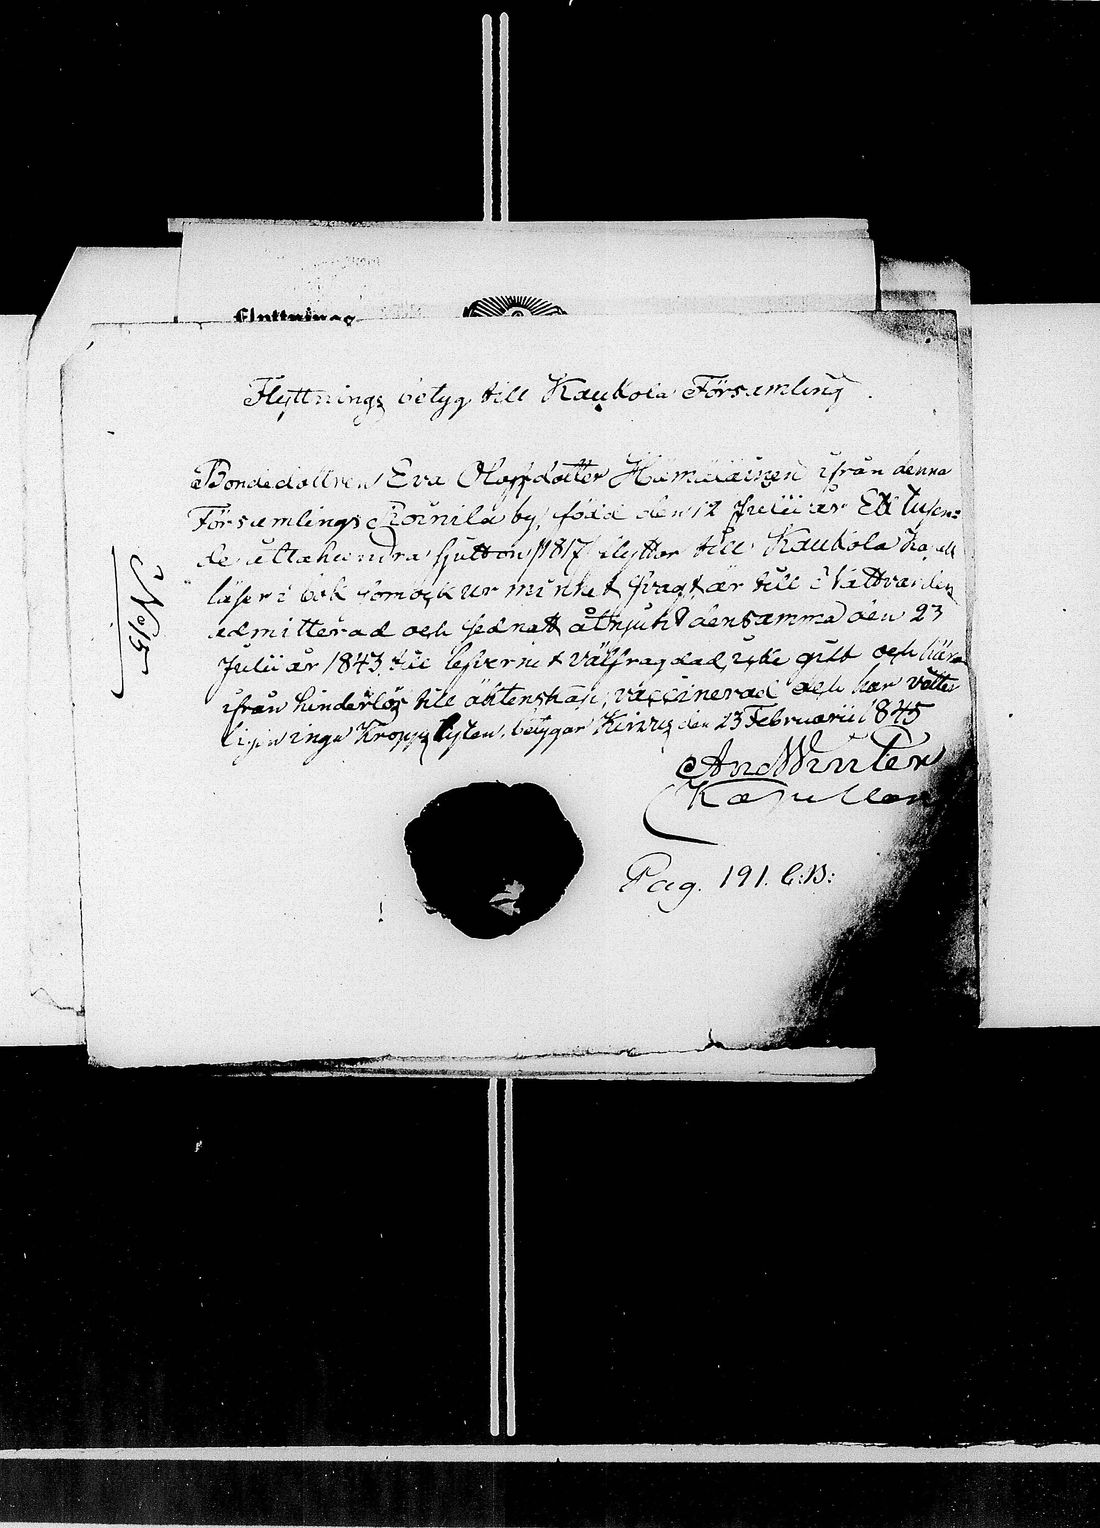 Flyttnings
Flyttnings betyg till Kaukola Församling.
Bondedottren Eva Olofsdotter Hämäläinen ifrån denna
Församlings by, född den 12 Julii år Ett tusen=
de åttahundra sjutton /1817/ flyttar till Kaukola
läser i bok som ock ur minnet svagt, är till Nattvarden
admitterad och sednast åtnjutit densamma den 23
Julii år 1843, till lefvernet välfrägdad, icke gift och
ifrån hinderlös till äktenskap, vaccinerad och har
ingen Kropps lyten, betygar Kirvus den 23 Februarii 1845
And Winter
Kapellan
Pag. 191. C:B:
No 15